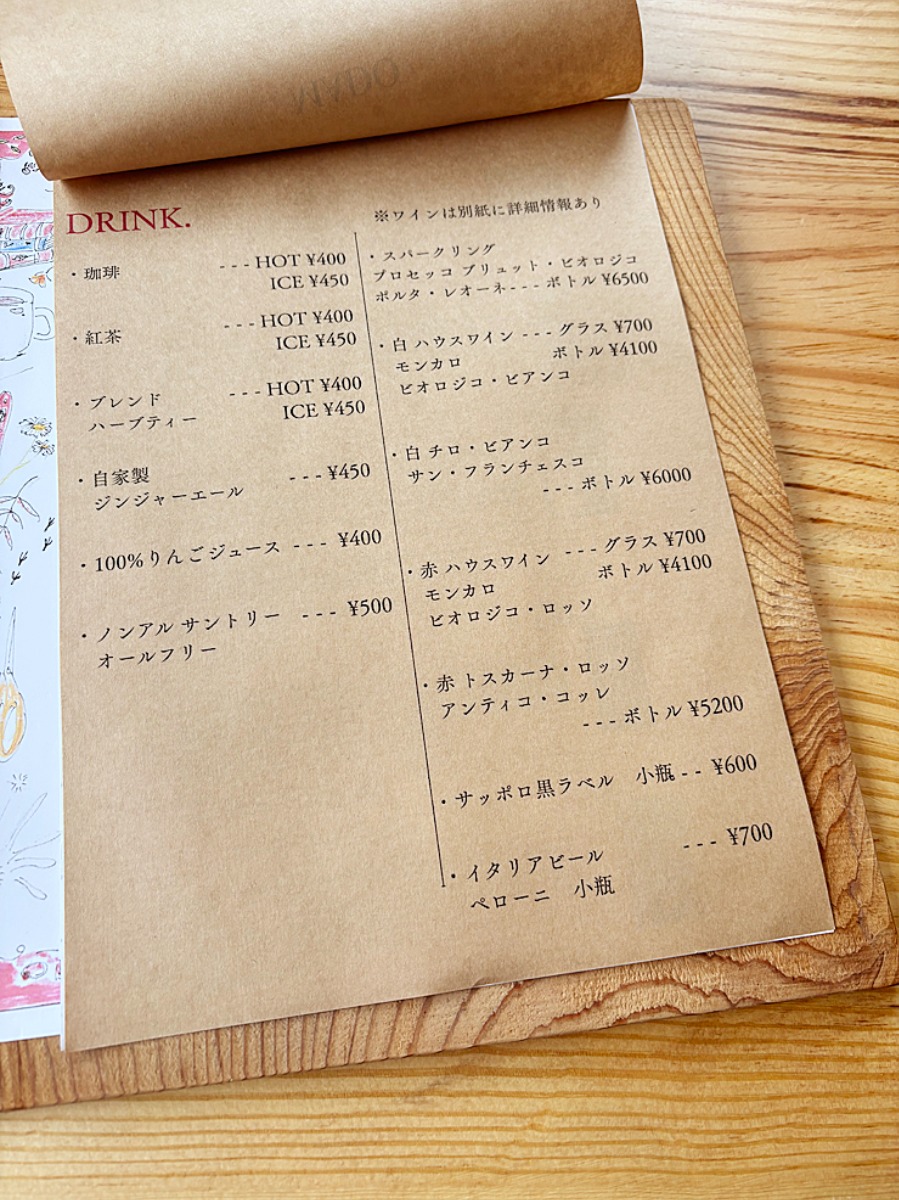 DRINK.
・珈琲 --- HOT ¥400
ICE ¥450
・紅茶 --- HOT ¥400
ICE ¥450
・ブレンド --- HOT ¥400
ハーブティー ICE ¥450
・自家製 --- ¥450
ジンジャーエール
・100%りんごジュース --- ¥400
・ノンアル サントリー --- ¥500
オールフリー
※ワインは別紙に詳細情報あり
・スパークリング
プロセッコ ブリュット・ビオロジコ
ポルタ・レオーネ--- ボトル ¥6500
・白 ハウスワイン --- グラス ¥700
モンカロ ボトル ¥4100
ビオロジコ・ビアンコ
・白 チロ・ビアンコ
サン・フランチェスコ
--- ボトル ¥6000
・赤 ハウスワイン --- グラス ¥700
モンカロ ボトル ¥4100
ビオロジコ・ロッソ
・赤 トスカーナ・ロッソ
アンティコ・コッレ
--- ボトル ¥5200
・サッポロ黒ラベル 小瓶 -- ¥600
・イタリアビール --- ¥700
ペローニ 小瓶